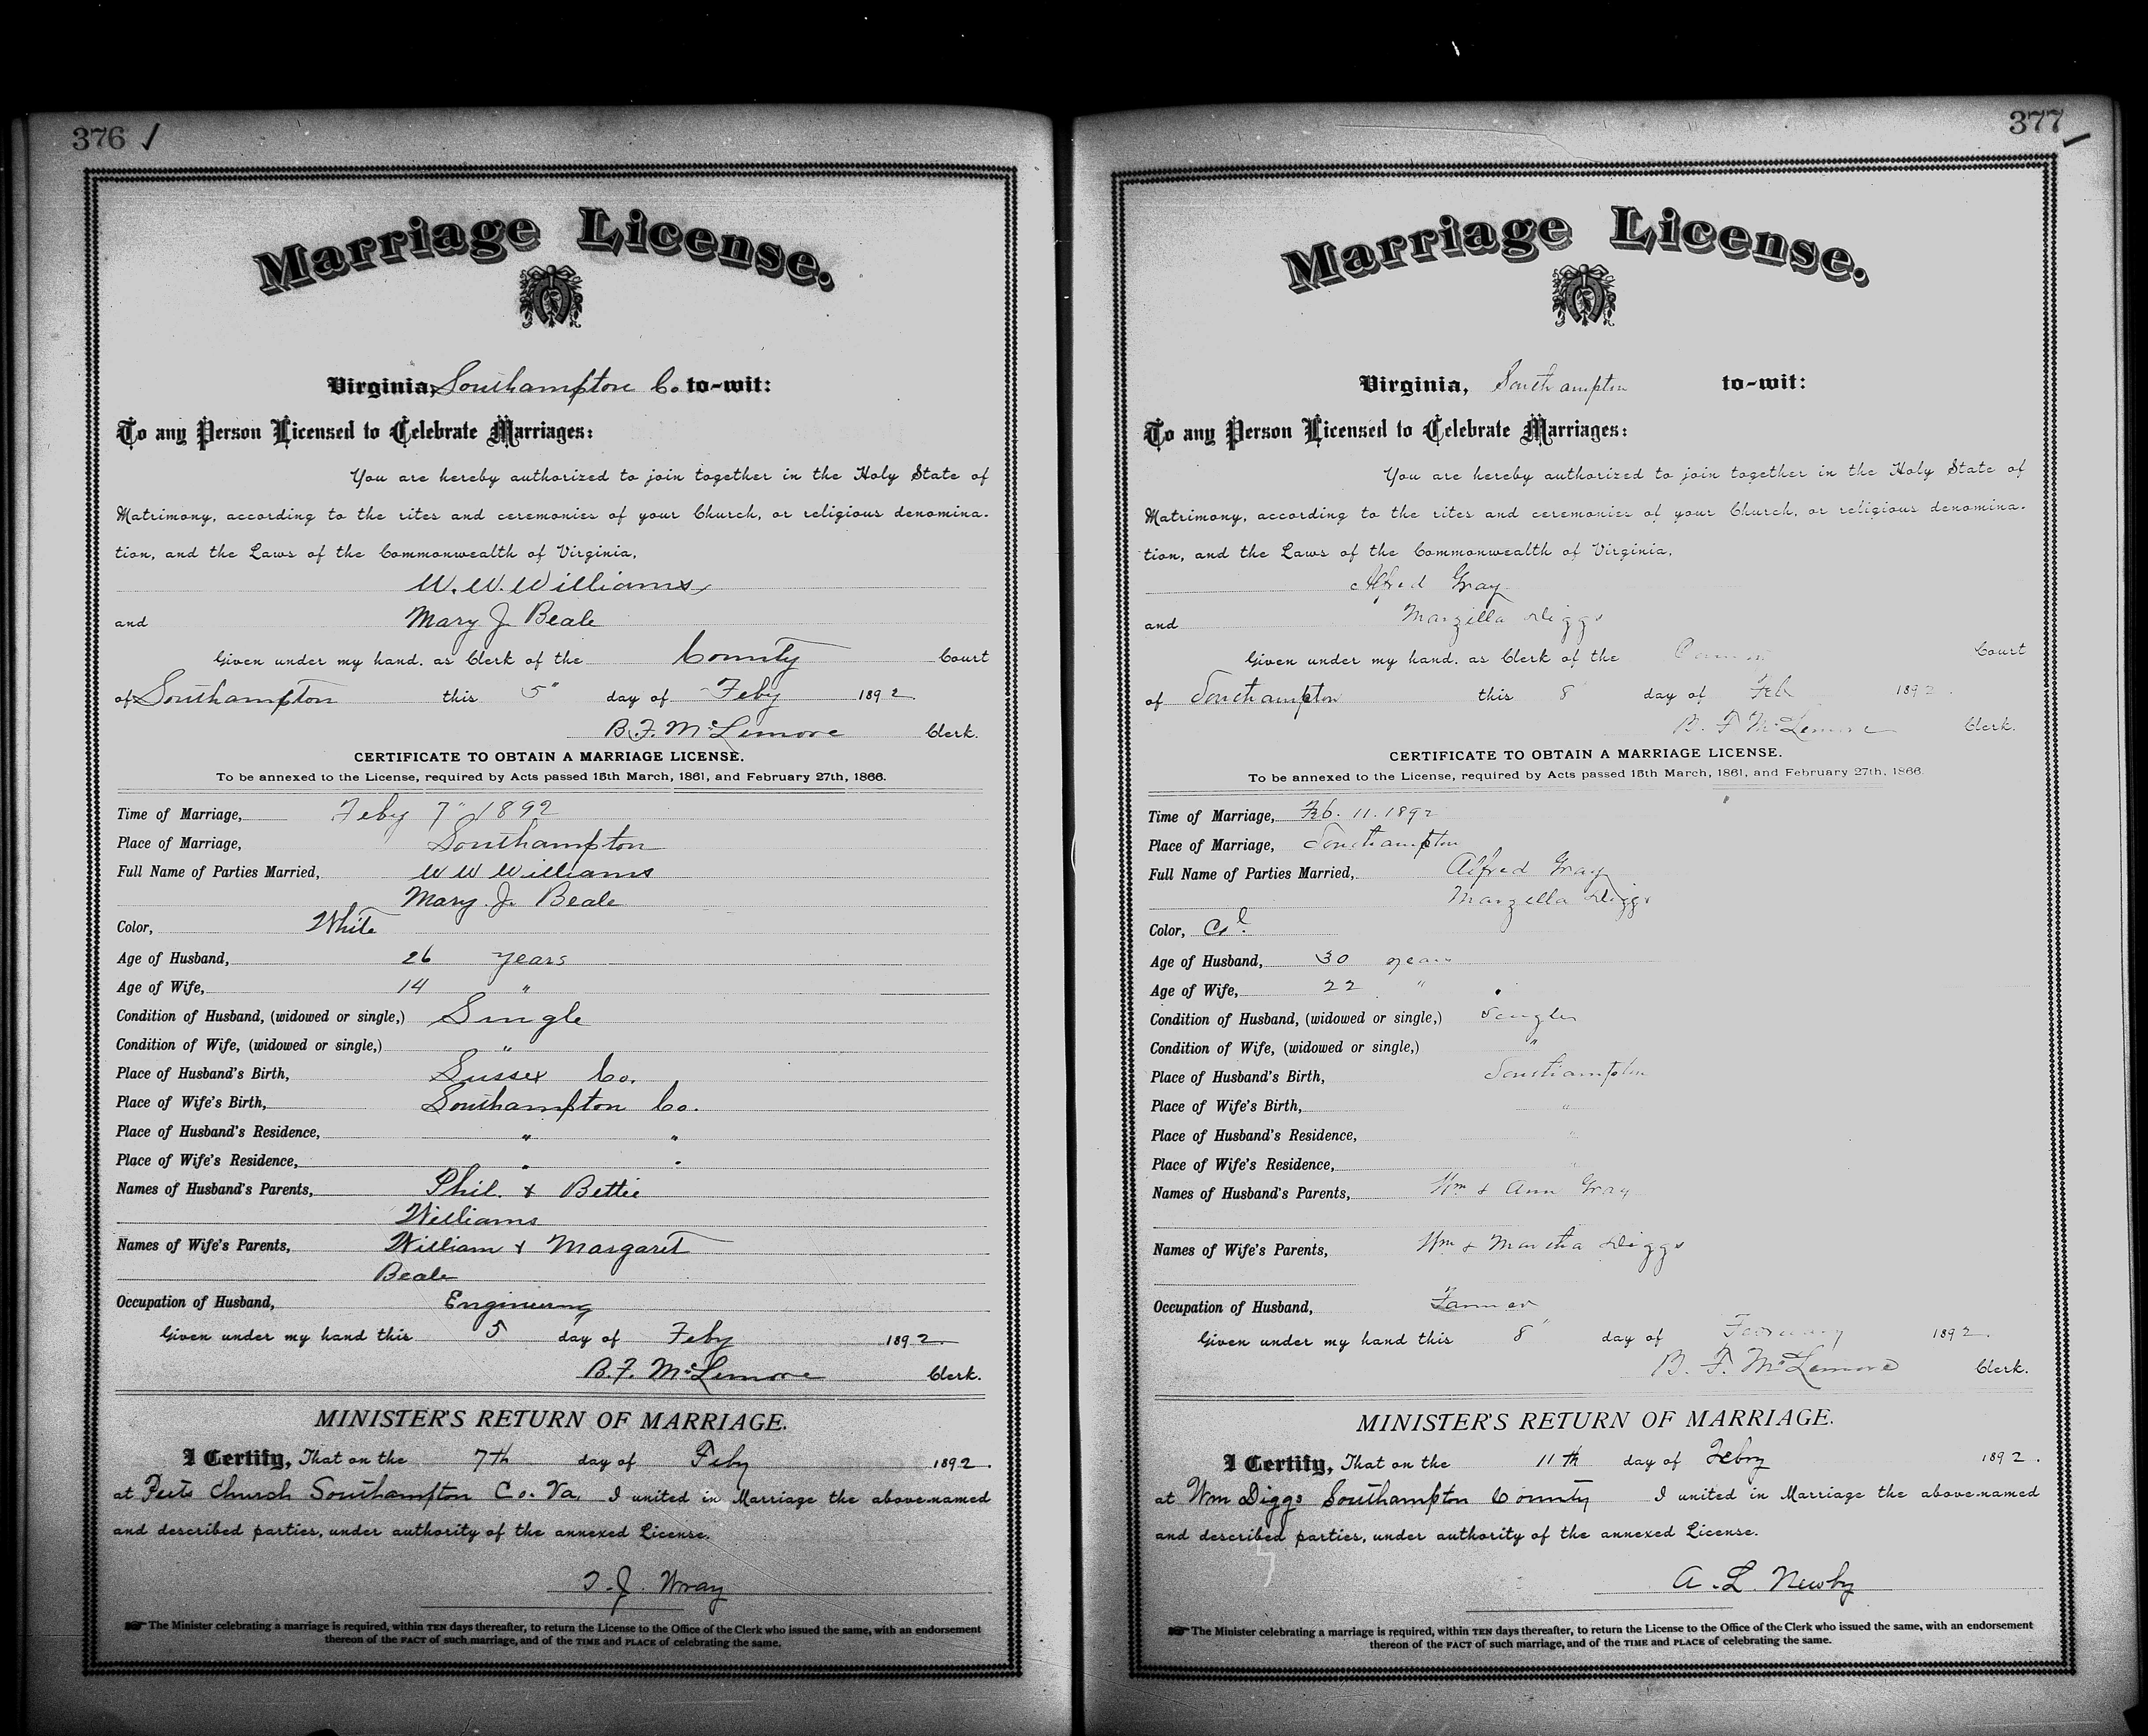 376
Marriage License.
Virginia, Southampton Co. to-wit:
To any Person Licensed to Celebrate Marriages:
You are hereby authorized to join together in the Holy State of
Matrimony, according to the rites and ceremonies of your Church, or religious denomina-
tion, and the Laws of the Commonwealth of Virginia,
W. W. Williams
and Mary J. Beale
Given under my hand, as Clerk of the County Court
of Southampton this 5" day of Feby 1892
B. F. McLemore Clerk.
CERTIFICATE TO OBTAIN A MARRIAGE LICENSE.
To be annexed to the License, required by Acts passed 15th March, 1861, and February 27th, 1866.
Time of Marriage, Feby 7" 1892
Place of Marriage, Southampton
Full Name of Parties Married, W W Williams
Mary. J. Beale
Color, White
Age of Husband, 26 years
Age of Wife, 14 "
Condition of Husband, (widowed or single,) Single
Condition of Wife, (widowed or single,) "
Place of Husband's Birth, Sussex Co.
Place of Wife's Birth, Southampton Co.
Place of Husband's Residence, " "
Place of Wife's Residence, " "
Names of Husband's Parents, Phil. & Bettie
Williams
Names of Wife's Parents, William & Margaret
Beale
Occupation of Husband, Engineering
Given under my hand this 5 day of Feby 1892
B. F. McLemore Clerk.
MINISTER'S RETURN OF MARRIAGE.
I Certify, That on the 7th day of Feby 1892.
at Church Southampton Co. Va. I united in Marriage the above-named
and described parties, under authority of the annexed License.
J. Wray
The Minister celebrating a marriage is required, within TEN days thereafter, to return the License to the Office of the Clerk who issued the same, with an endorsement
thereon of the FACT of such marriage, and of the TIME and PLACE of celebrating the same.
377
Marriage License.
Virginia, Southampton to-wit:
To any Person Licensed to Celebrate Marriages:
You are hereby authorized to join together in the Holy State of
Matrimony, according to the rites and ceremonies of your Church, or religious denomina-
tion, and the Laws of the Commonwealth of Virginia,
Alfred Gray
and Marzilla Diggs
Given under my hand, as Clerk of the Court
of Southampton this 8 day of Feb 1892.
B. F. McLemore Clerk.
CERTIFICATE TO OBTAIN A MARRIAGE LICENSE.
To be annexed to the License, required by Acts passed 15th March, 1861, and February 27th, 1866.
Time of Marriage, Feb. 11. 1892
Place of Marriage, Southampton
Full Name of Parties Married, Alfred Gray
Marzilla Diggs
Color, Cold.
Age of Husband, 30 years
Age of Wife, 22 "
Condition of Husband, (widowed or single,) Single
Condition of Wife, (widowed or single,) "
Place of Husband's Birth, Southampton
Place of Wife's Birth, "
Place of Husband's Residence, "
Place of Wife's Residence, "
Names of Husband's Parents, Wm & Ann Gray
Names of Wife's Parents, Wm & Martha Diggs
Occupation of Husband, Farmer
Given under my hand this 8" day of February 1892.
B. F. McLemore Clerk.
MINISTER'S RETURN OF MARRIAGE.
I Certify, That on the 11th day of Febry 1892.
at Wm Diggs Southampton County I united in Marriage the above-named
and described parties, under authority of the annexed License.
A. L. Newby
The Minister celebrating a marriage is required, within TEN days thereafter, to return the License to the Office of the Clerk who issued the same, with an endorsement
thereon of the FACT of such marriage, and of the TIME and PLACE of celebrating the same.